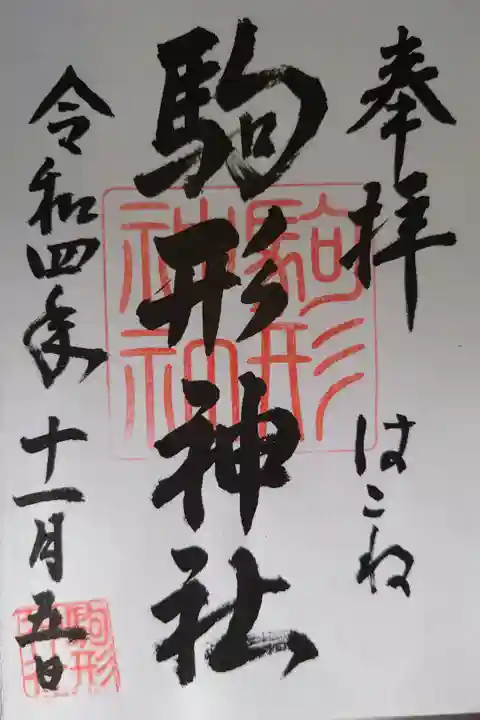 奉拝 はこね
駒形神社
令和四年十一月五日
駒形
神社
駒形
神社